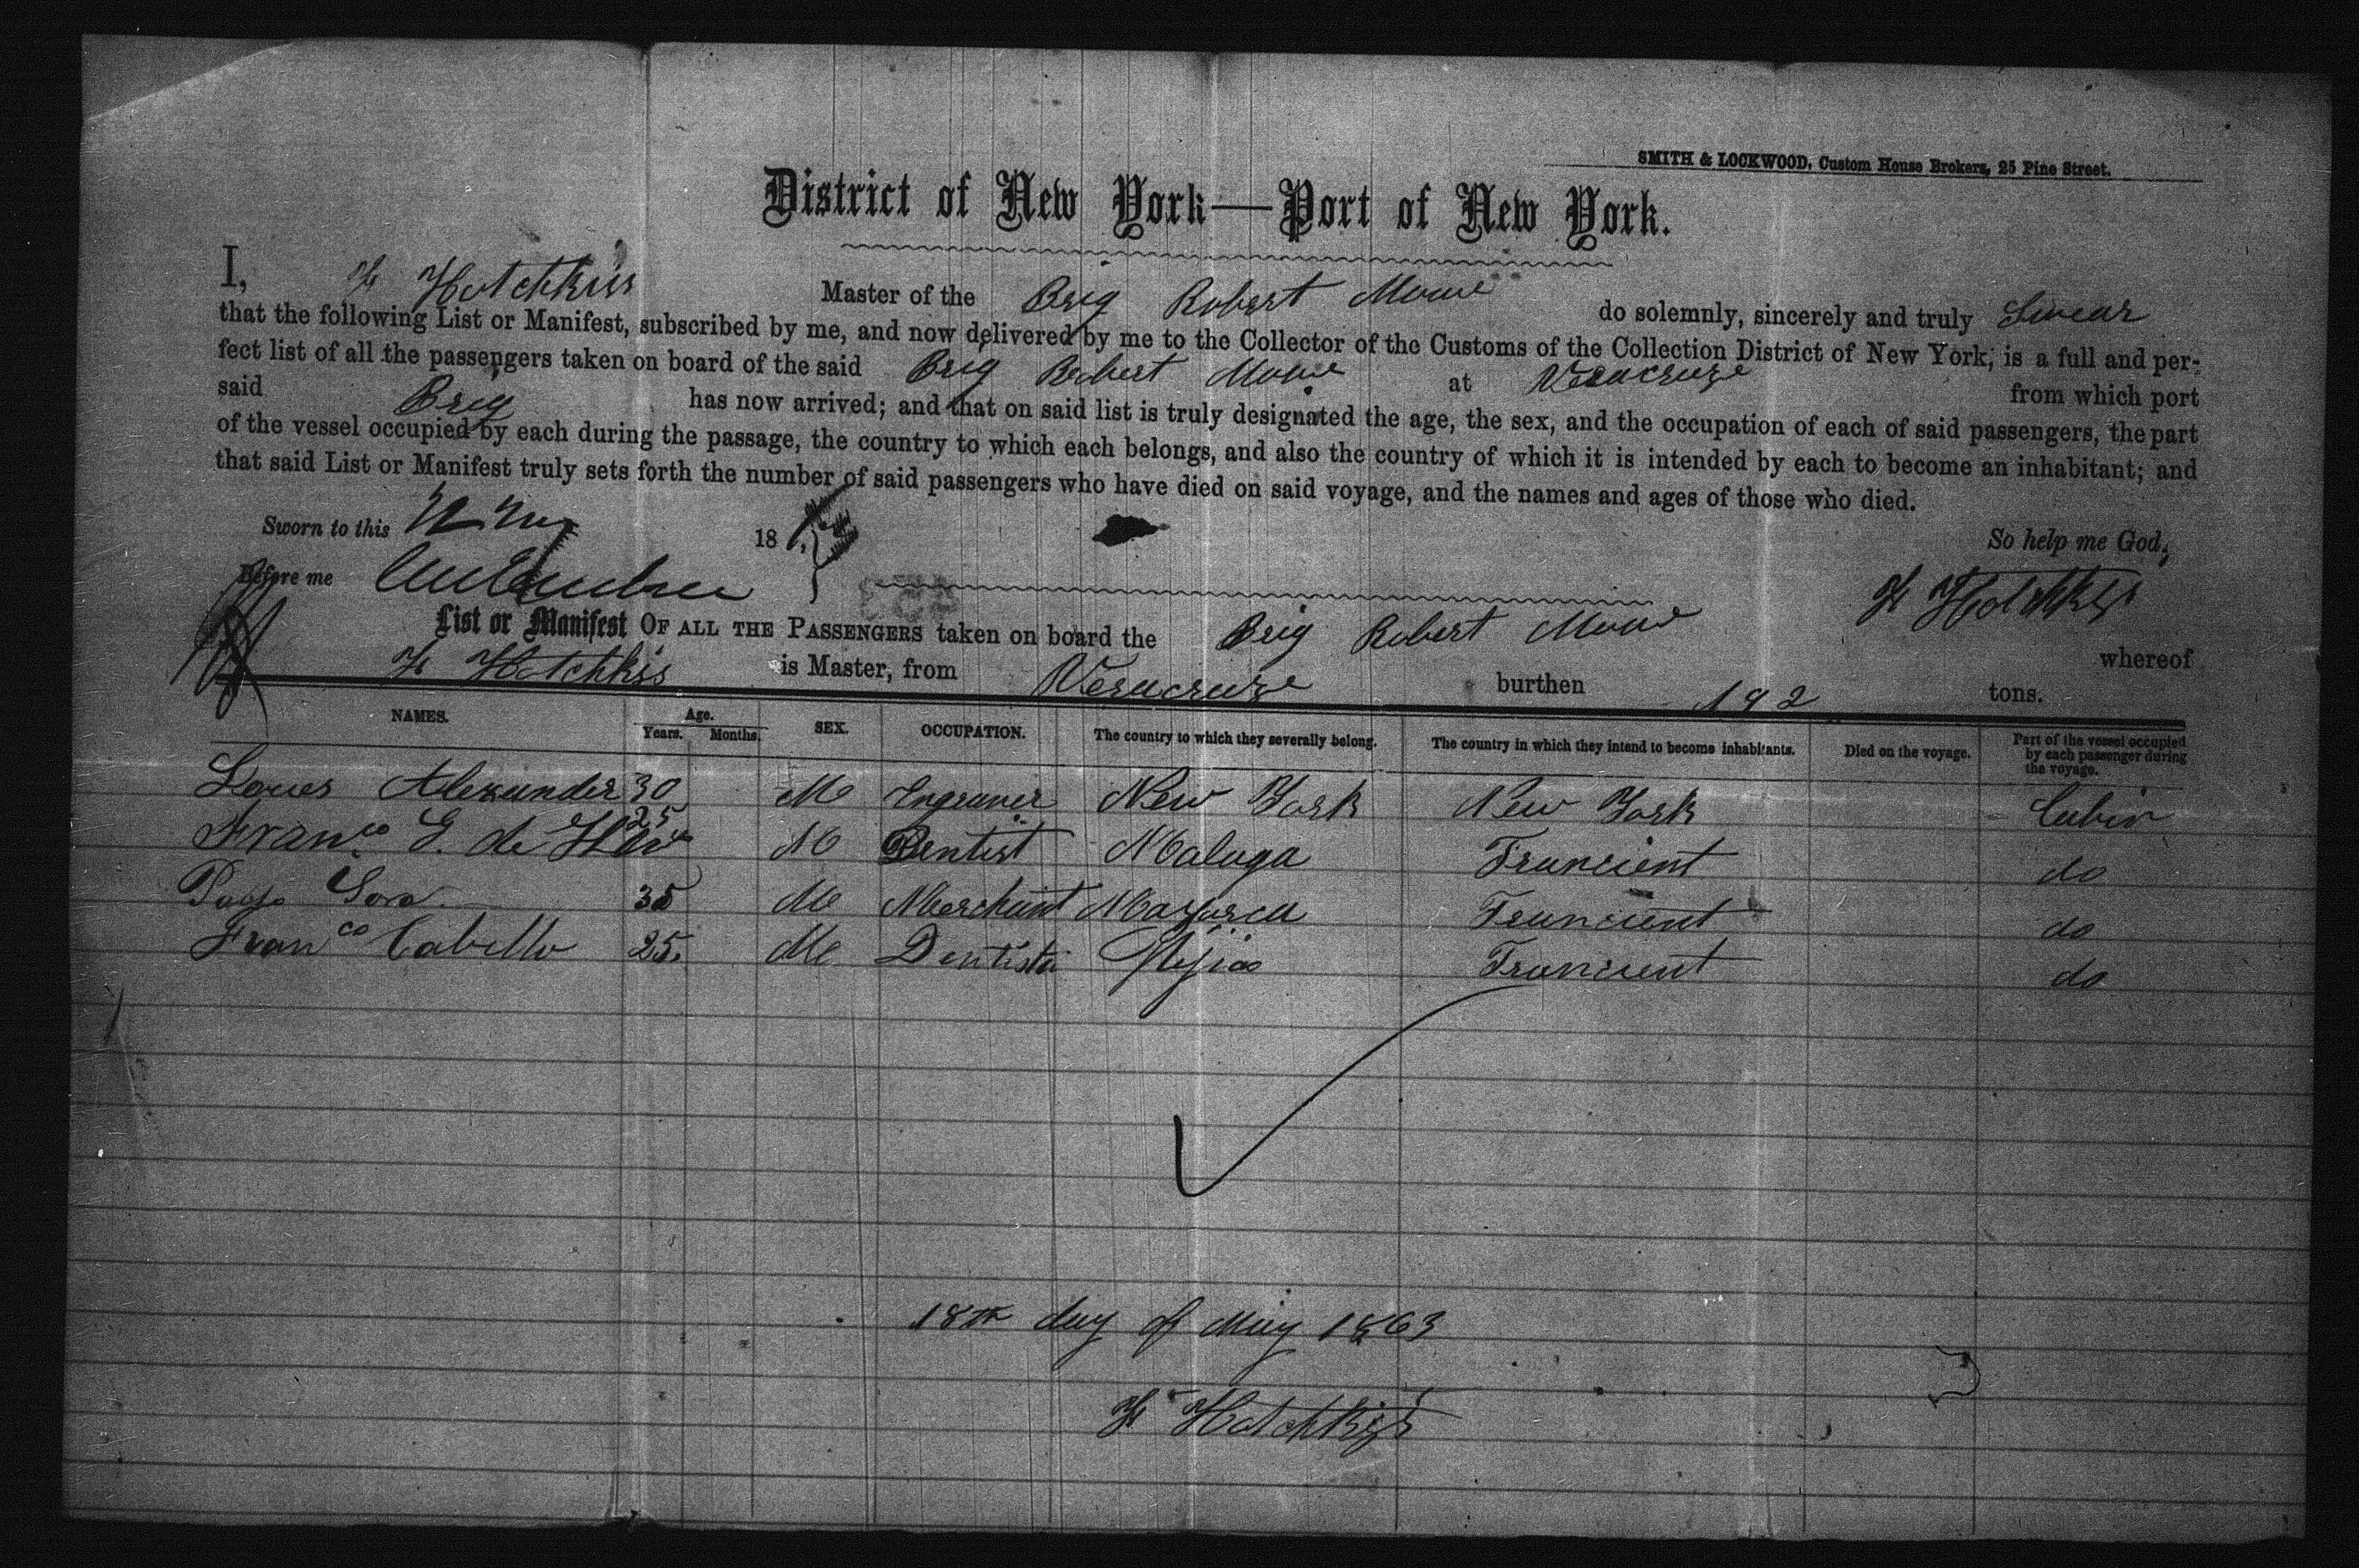 SMITH & LOCKWOOD, Custom House Brokers, 25 Pine Street.
District of New York—Port of New York.
I, Hotchkiss Master of the Brig Robert do solemnly, sincerely and truly Swear
that the following List or Manifest, subscribed by me, and now delivered by me to the Collector of the Customs of the Collection District of New York, is a full and per-
fect list of all the passengers taken on board of the said Brig Robert at Veracruze from which port
said Brig has now arrived; and that on said list is truly designated the age, the sex, and the occupation of each of said passengers, the part
of the vessel occupied by each during the passage, the country to which each belongs, and also the country of which it is intended by each to become an inhabitant; and
that said List or Manifest truly sets forth the number of said passengers who have died on said voyage, and the names and ages of those who died.
Sworn to this 18 So help me God,
Before me Hotchkiss
List or Manifest OF ALL THE PASSENGERS taken on board the Brig Robert whereof
Hotchkiss is Master, from Veracruze burthen 192 tons.
NAMES. Age. Years. Months. SEX. OCCUPATION. The country to which they severally belong. The country in which they intend to become inhabitants. Died on the voyage. Part of the vessel occupied by each passenger during the voyage.
Alexander 30 M Engraver New York New York Cabin
Franco E. de 25 M Dentist Malaga Trancient do
35 M Merchant Mayorca Trancient do
Franco Cabello 25 M Dentista Trancient do
18th day of May 1863
Hotchkiss